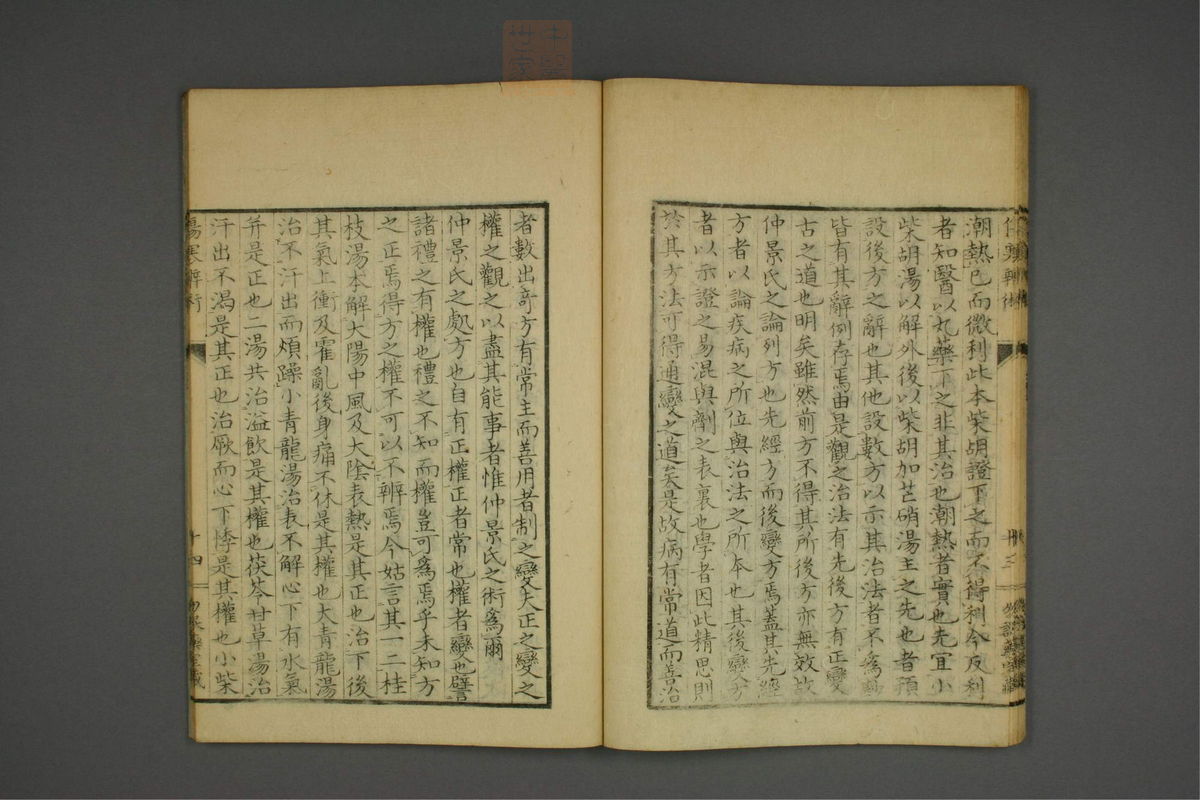 潮熱已而微利此本柴胡證下之而不得利今反利
者知醫以丸藥下之非其治也潮熱者實也先宜小
柴胡湯以解外後以柴胡加芒硝湯主之先也者預
設後方之辭也其他設數方以示其治法者不爲
皆有其辭例存焉由是觀之治法有先後方有正變
古之道也明矣雖然前方不得其所後方亦無效故
仲景氏之論列方也先經方而後變方焉蓋其先經
方者以論疾病之所位與治法之所本也其後變方
者以示證之易混與劑之表裏也學者因此精思則
於其方法可得通變之道矣是故病有常道而善治
者數出奇方有常主而善用者制之變夫正之變之
權之觀之以盡其能事者惟仲景氏之術爲爾
仲景氏之處方也自有正權正者常也權者變也譬
諸禮之有權也禮之不知而權豈可爲焉乎未知方
之正焉得方之權不可以不辨焉今姑言其一二桂
枝湯本解大陽中風及大陰表熱是其正也治下後
其氣上衝及霍亂後身痛不休是其權也大青龍湯
治不汗出而煩躁小青龍湯治表不解心下有水氣
并是正也二湯共治溢飲是其權也茯苓甘草湯治
汗出不渴是其正也治厥而心下悸是其權也小柴
傷寒辨術
十四